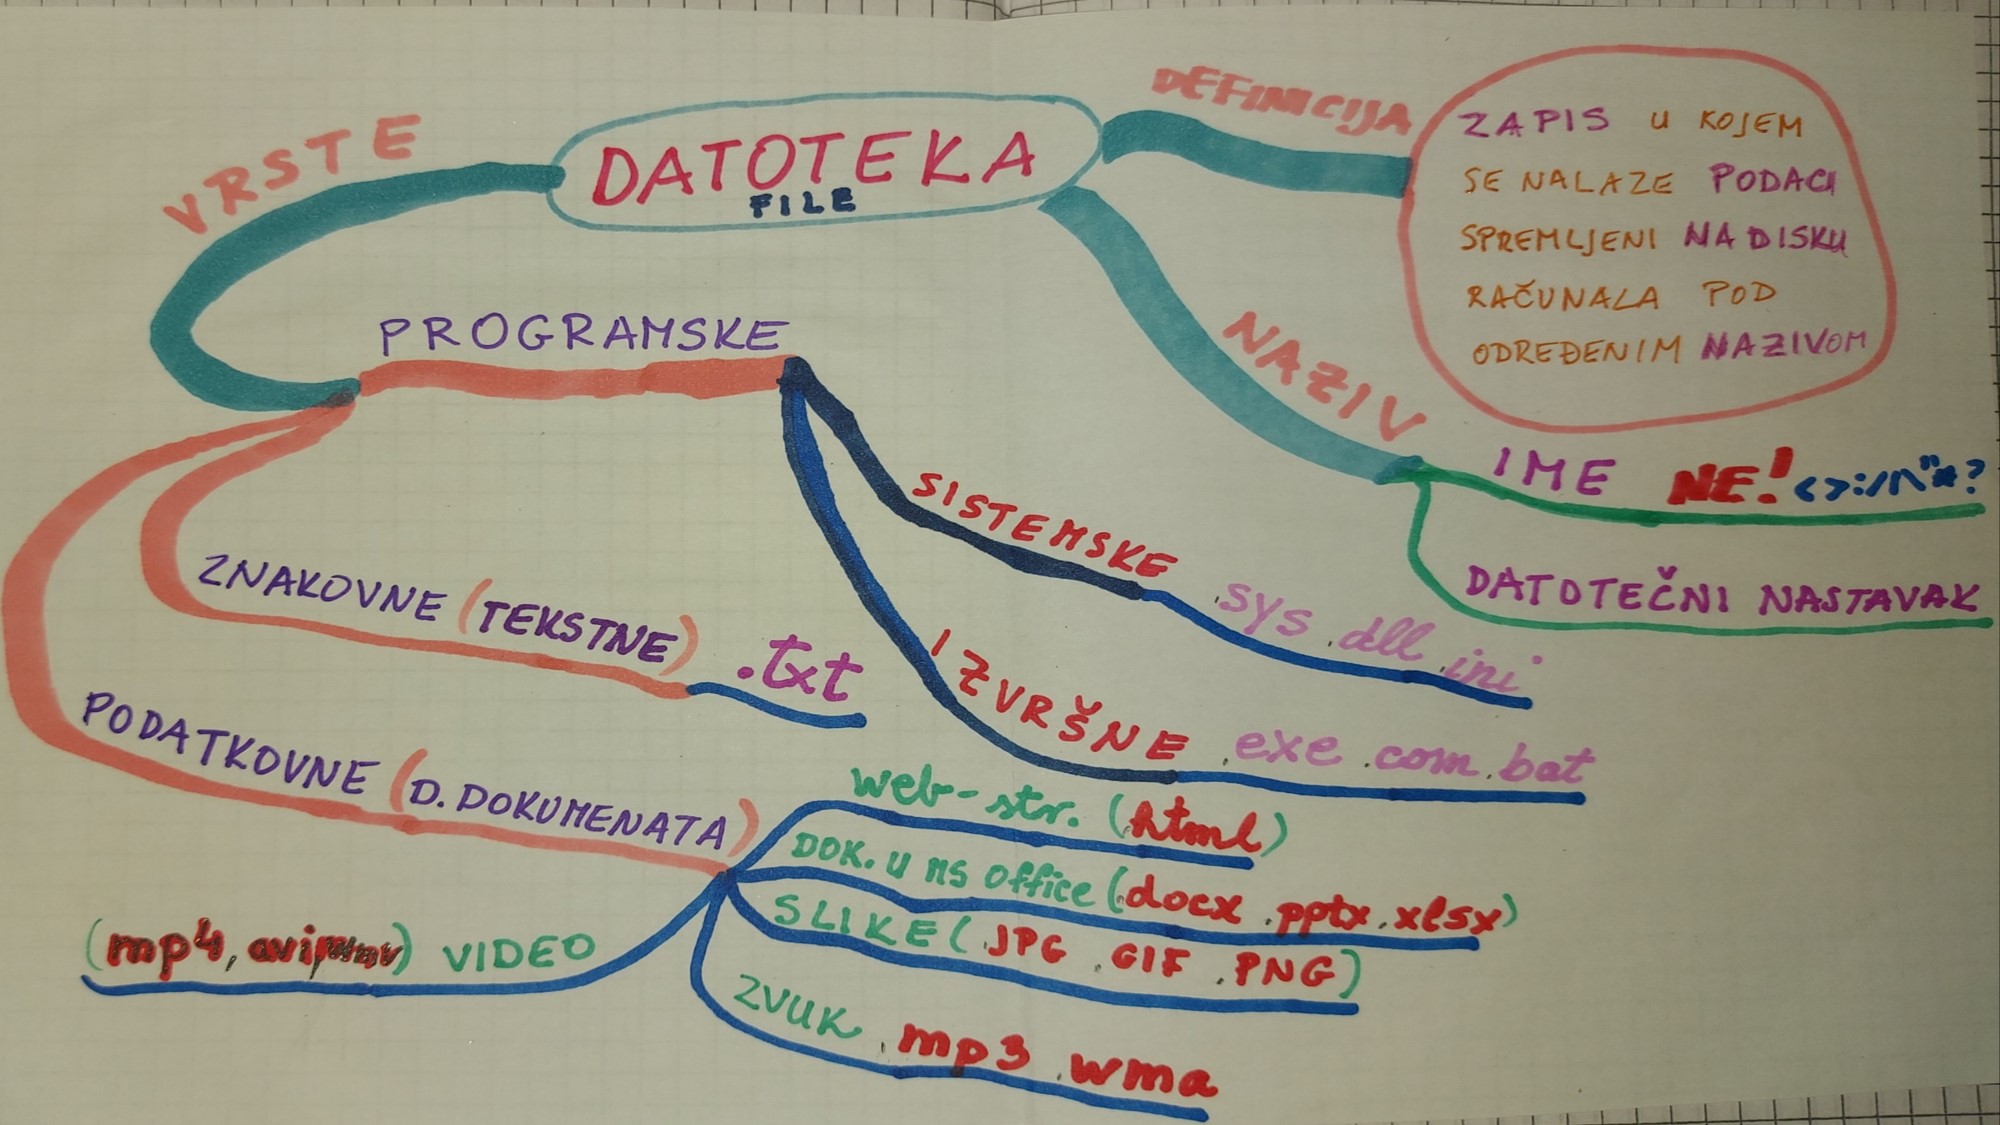 DATOTEKA
FILE
DEFINICIJA
ZAPIS U KOJEM
SE NALAZE PODACI
SPREMLJENI NA DISKU
RAČUNALA POD
ODREĐENIM NAZIVOM
NAZIV
IME NE! <>:/|\"*?
DATOTEČNI NASTAVAK
VRSTE
PROGRAMSKE
SISTEMSKE .sys .dll .ini
IZVRŠNE .exe .com .bat
ZNAKOVNE (TEKSTNE) .txt
PODATKOVNE (D. DOKUMENATA)
web-str. (.html)
DOK. U MS Office (.docx .pptx .xlsx)
SLIKE (.JPG .GIF .PNG)
ZVUK .mp3 .wma
(mp4, avi, wmv) VIDEO